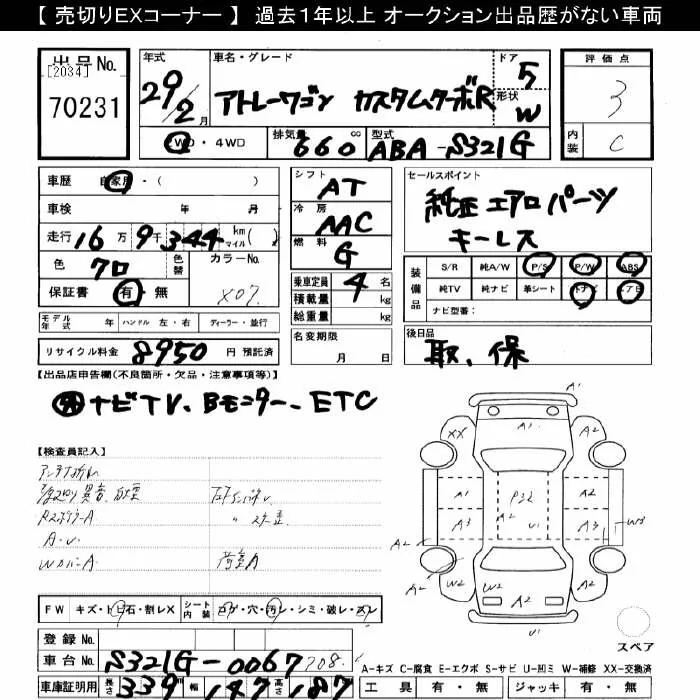 【 売切りEXコーナー 】 過去1年以上 オークション出品歴がない車両
出品No.
[2034]
70231
年式
29/2月
車名・グレード
アトレーワゴン カスタムターボR
ドア
5
形状
W
評価点
3
内装
C
2WD・4WD
排気量
660
cc
型式
ABA-S321G
車歴 自家用・( )
車検 年 月
走行 16万9千344 km マイル( )
色 クロ
色替
カラーNo.
X07
保証書 有・無
シフト
AT
冷房
AAC
燃料
G
乗車定員 4 名
積載量 kg
総重量 kg
名変期限
月 日
セールスポイント
純正エアロパーツ
キーレス
装備品
S/R 純A/W P/S P/W ABS
純TV 純ナビ 革シート
ナビ型番:
後日品
取、保
モデル年式 年 ハンドル 左・右 ディーラー・並行
リサイクル料金 8950 円 預託済
【出品店申告欄(不良箇所・欠品・注意事項等)】
ナビTV、Bモニター、ETC
【検査員記入】
RスポイラーA
A.U.
WカバーA
荷室A
A1
A1
XX
A2
A1
A3
P32
U1
A2
A3
W3
A2
A2
W2
W2
A2
W2
U1
スペア
FW キズ・トビ石・割レX
シート内装
コゲ・穴・汚レ・シミ・破レ・スレ
登録No.
車台No. S321G-0067208
車庫証明用 長さ 339 幅 147 高さ 187
A-キズ C-腐食 E-エクボ S-サビ U-凹ミ W-補修 XX-交換済
工具 有・無 ジャッキ 有・無